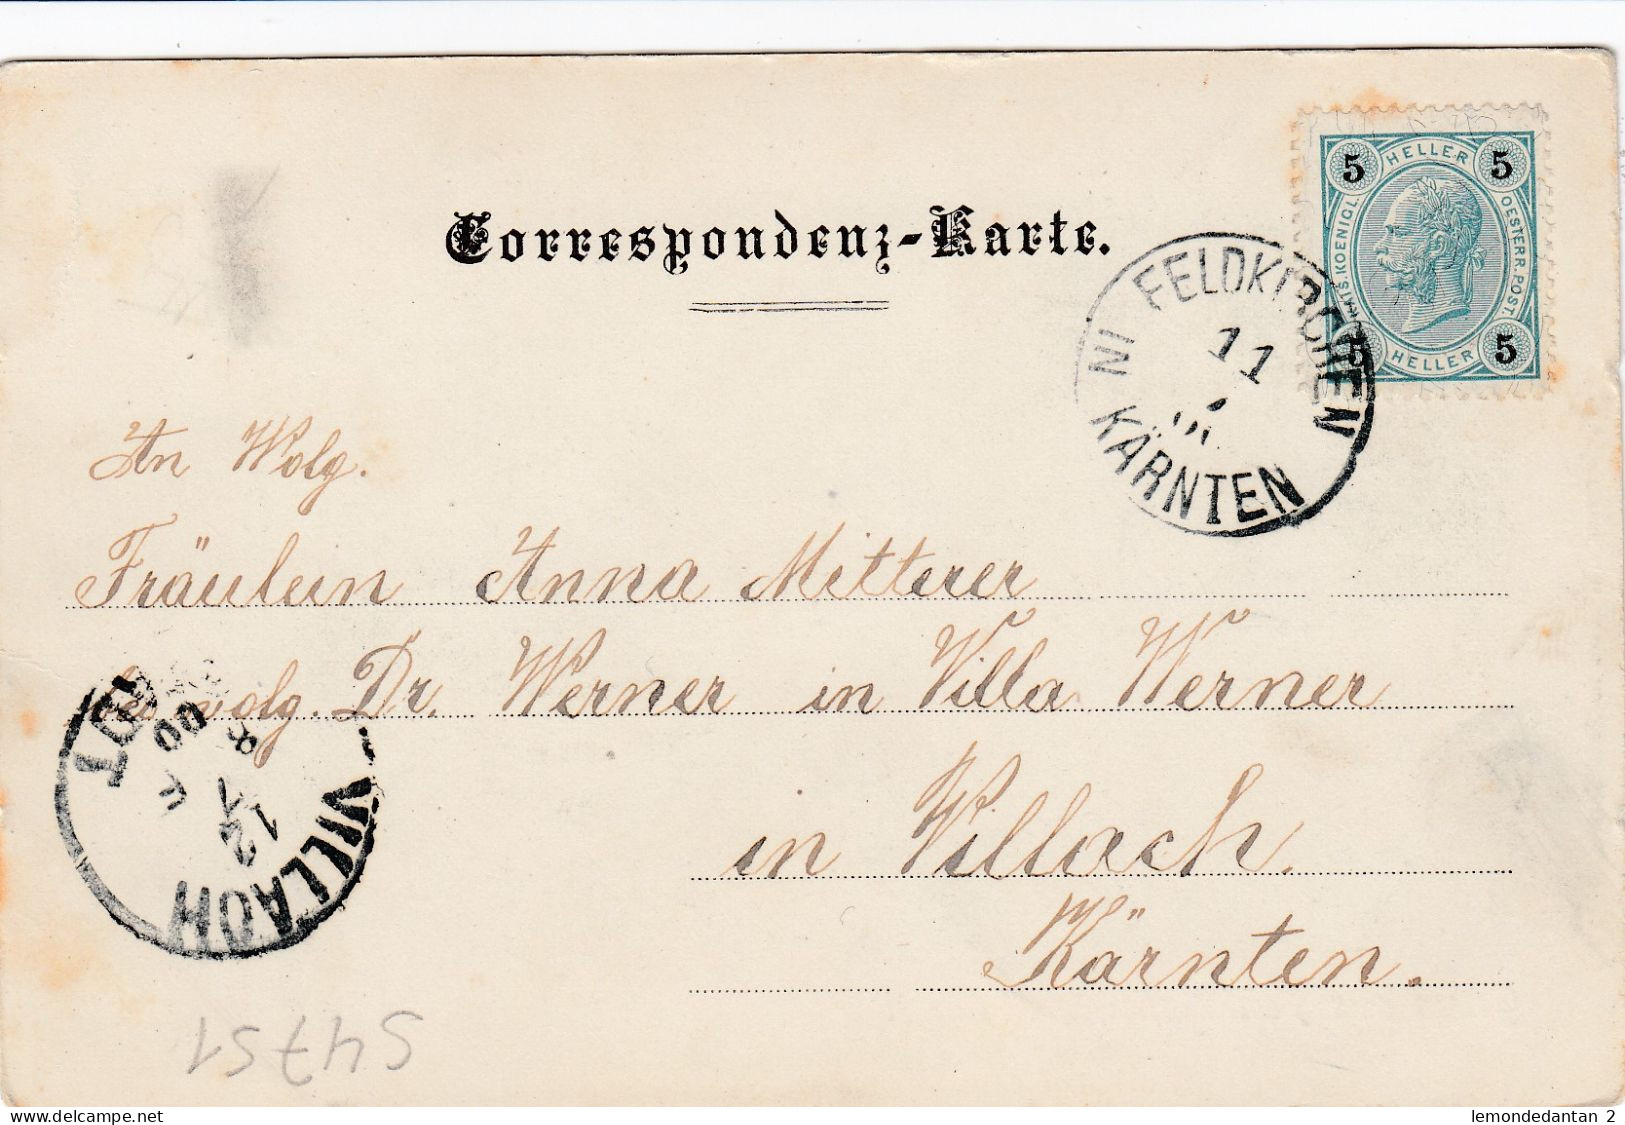 Correspondenz-Karte.
5 HELLER 5
KAIS. KOENIGL.
OESTERR. POST
5 HELLER 5
FELDKIRCHEN
IN KÄRNTEN
11
An Wolg.
Fräulein Anna Mitterer
bei wolg. Dr. Werner in Villa Werner
in Villach.
Kärnten.
VILLACH
12
8
00
54751
lemondedantan 2